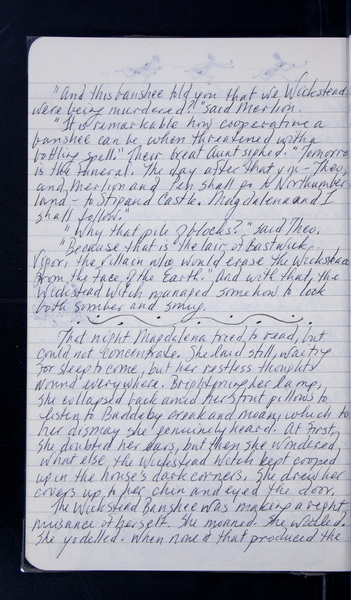 "And this banshee told you that we Wicksteads
were being murdered?!" said Merlion.
"It is remarkable how cooperative a
banshee can be when threatened with a
bottling spell." Their Great Aunt sighed. "Tomorrow
is the funeral. The day after that you - Theo,
and Merlion and Pen shall go to Northumber-
land - to Stipand Castle. Magdalena and I
shall follow."
"Why that pile of blocks?" said Theo.
"Because that is the lair of Eastwick
Vipor, the villain who would erase the Wicksteads
from the face of the Earth." And with that, the
Wickstead Witch managed somehow to look
both somber and smug.
That night Magdalena tried to read, but
could not concentrate. She laid still, waiting
for sleep to come, but her restless thoughts
wound everywhere. Brightening her lamp,
she collapsed back amid her stout pillows to
listen to Baddeby creak and moan, which to
her dismay she genuinely heard. At first,
she doubted her ears, but then she wondered
what else the Wickstead Witch kept cooped
up in the house's dark corners. She drew her
covers up to her chin and eyed the door.
The Wickstead Banshee was making a right
nuisance of herself. She moaned. She wailed.
She yodelled. When none of that produced the